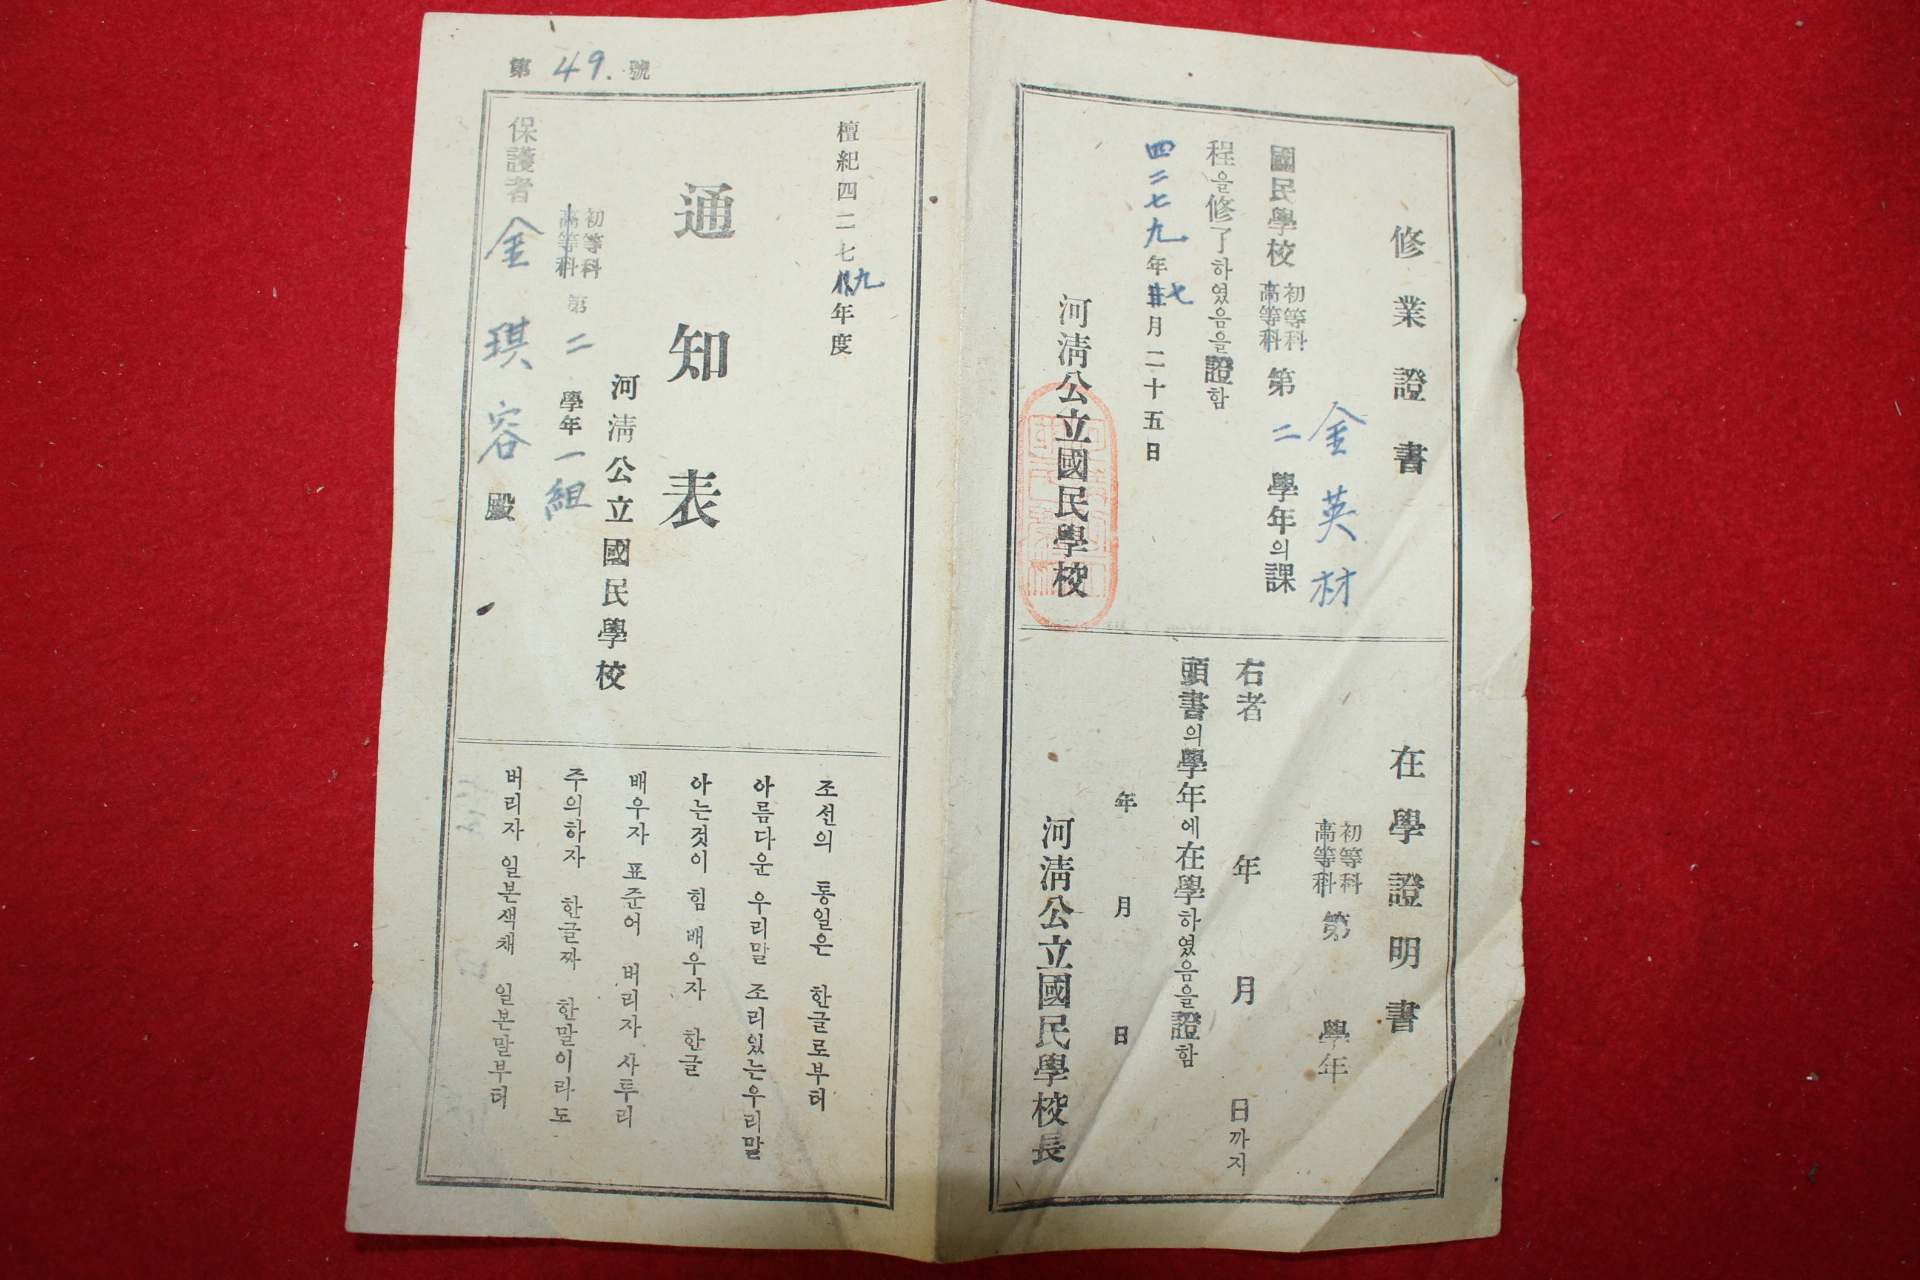 修業證書
金英材
國民學校 初等科 高等科 第二學年의課
程을修了하였음을證함
四二七九年七月二十五日
河淸公立國民學校
在學證明書
初等科 高等科 第 學年
右者 年 月 日까지
頭書의學年에在學하였음을證함
年 月 日
河淸公立國民學校長
第49.號
檀紀四二七九年度
通知表
河淸公立國民學校
初等科 高等科 第二學年一組
保護者 金琪容 殿
조선의 통일은 한글로부터
아름다운 우리말 조리있는우리말
아는것이 힘 배우자 한글
배우자 표준어 버리자 사투리
주의하자 한글짜 한말이라도
버리자 일본색채 일본말부터